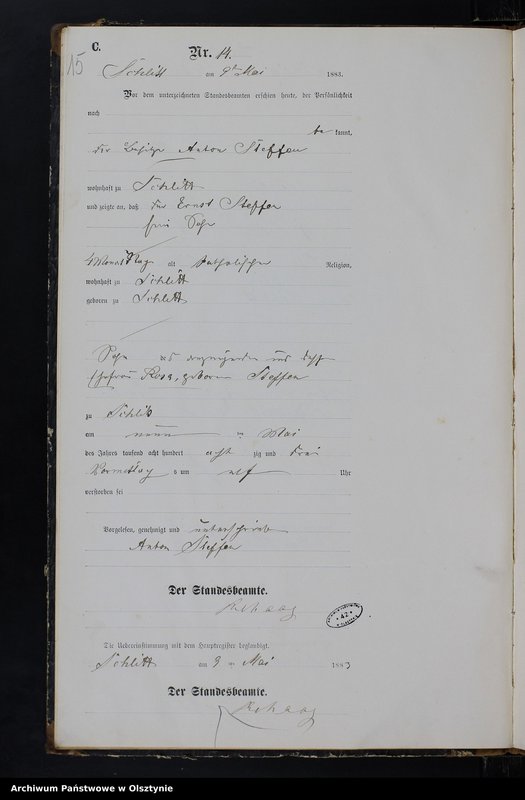 15
C.
Nr. 14.
Schlitt am 9ten Mai 1883.
Vor dem unterzeichneten Standesbeamten erschien heute, der Persönlichkeit
nach
be kannt,
der Besitzer Anton Steffen
wohnhaft zu Schlitt
und zeigte an, daß der Ernst Steffen
sein Sohn
4 Monat Tage alt katholischer Religion,
wohnhaft zu Schlitt
geboren zu Schlitt
Sohn des Anzeigenden und dessen
Ehefrau Rosa, geborene Steffen
zu Schlitt
am neun ten Mai
des Jahres tausend acht hundert acht zig und drei
Vormittag s um elf Uhr
verstorben sei
Vorgelesen, genehmigt und unterschrieben
Anton Steffen
Der Standesbeamte.
Rehaag
42
Die Uebereinstimmung mit dem Hauptregister beglaubigt.
Schlitt am 9 ten Mai 1883
Der Standesbeamte.
Rehaag
Archiwum Państwowe w Olsztynie